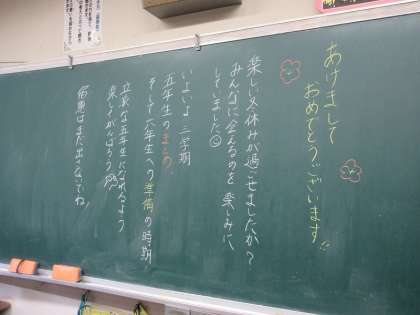 あけまして
おめでとうございます!!
楽しい冬休みが過ごせましたか?
みんなに会えるのを楽しみに
していました
いよいよ三学期
五年生のまとめ
そして六年生への準備の時期
立派な六年生になれるよう
楽しくがんばろう
宿題はまだ出さないでね!